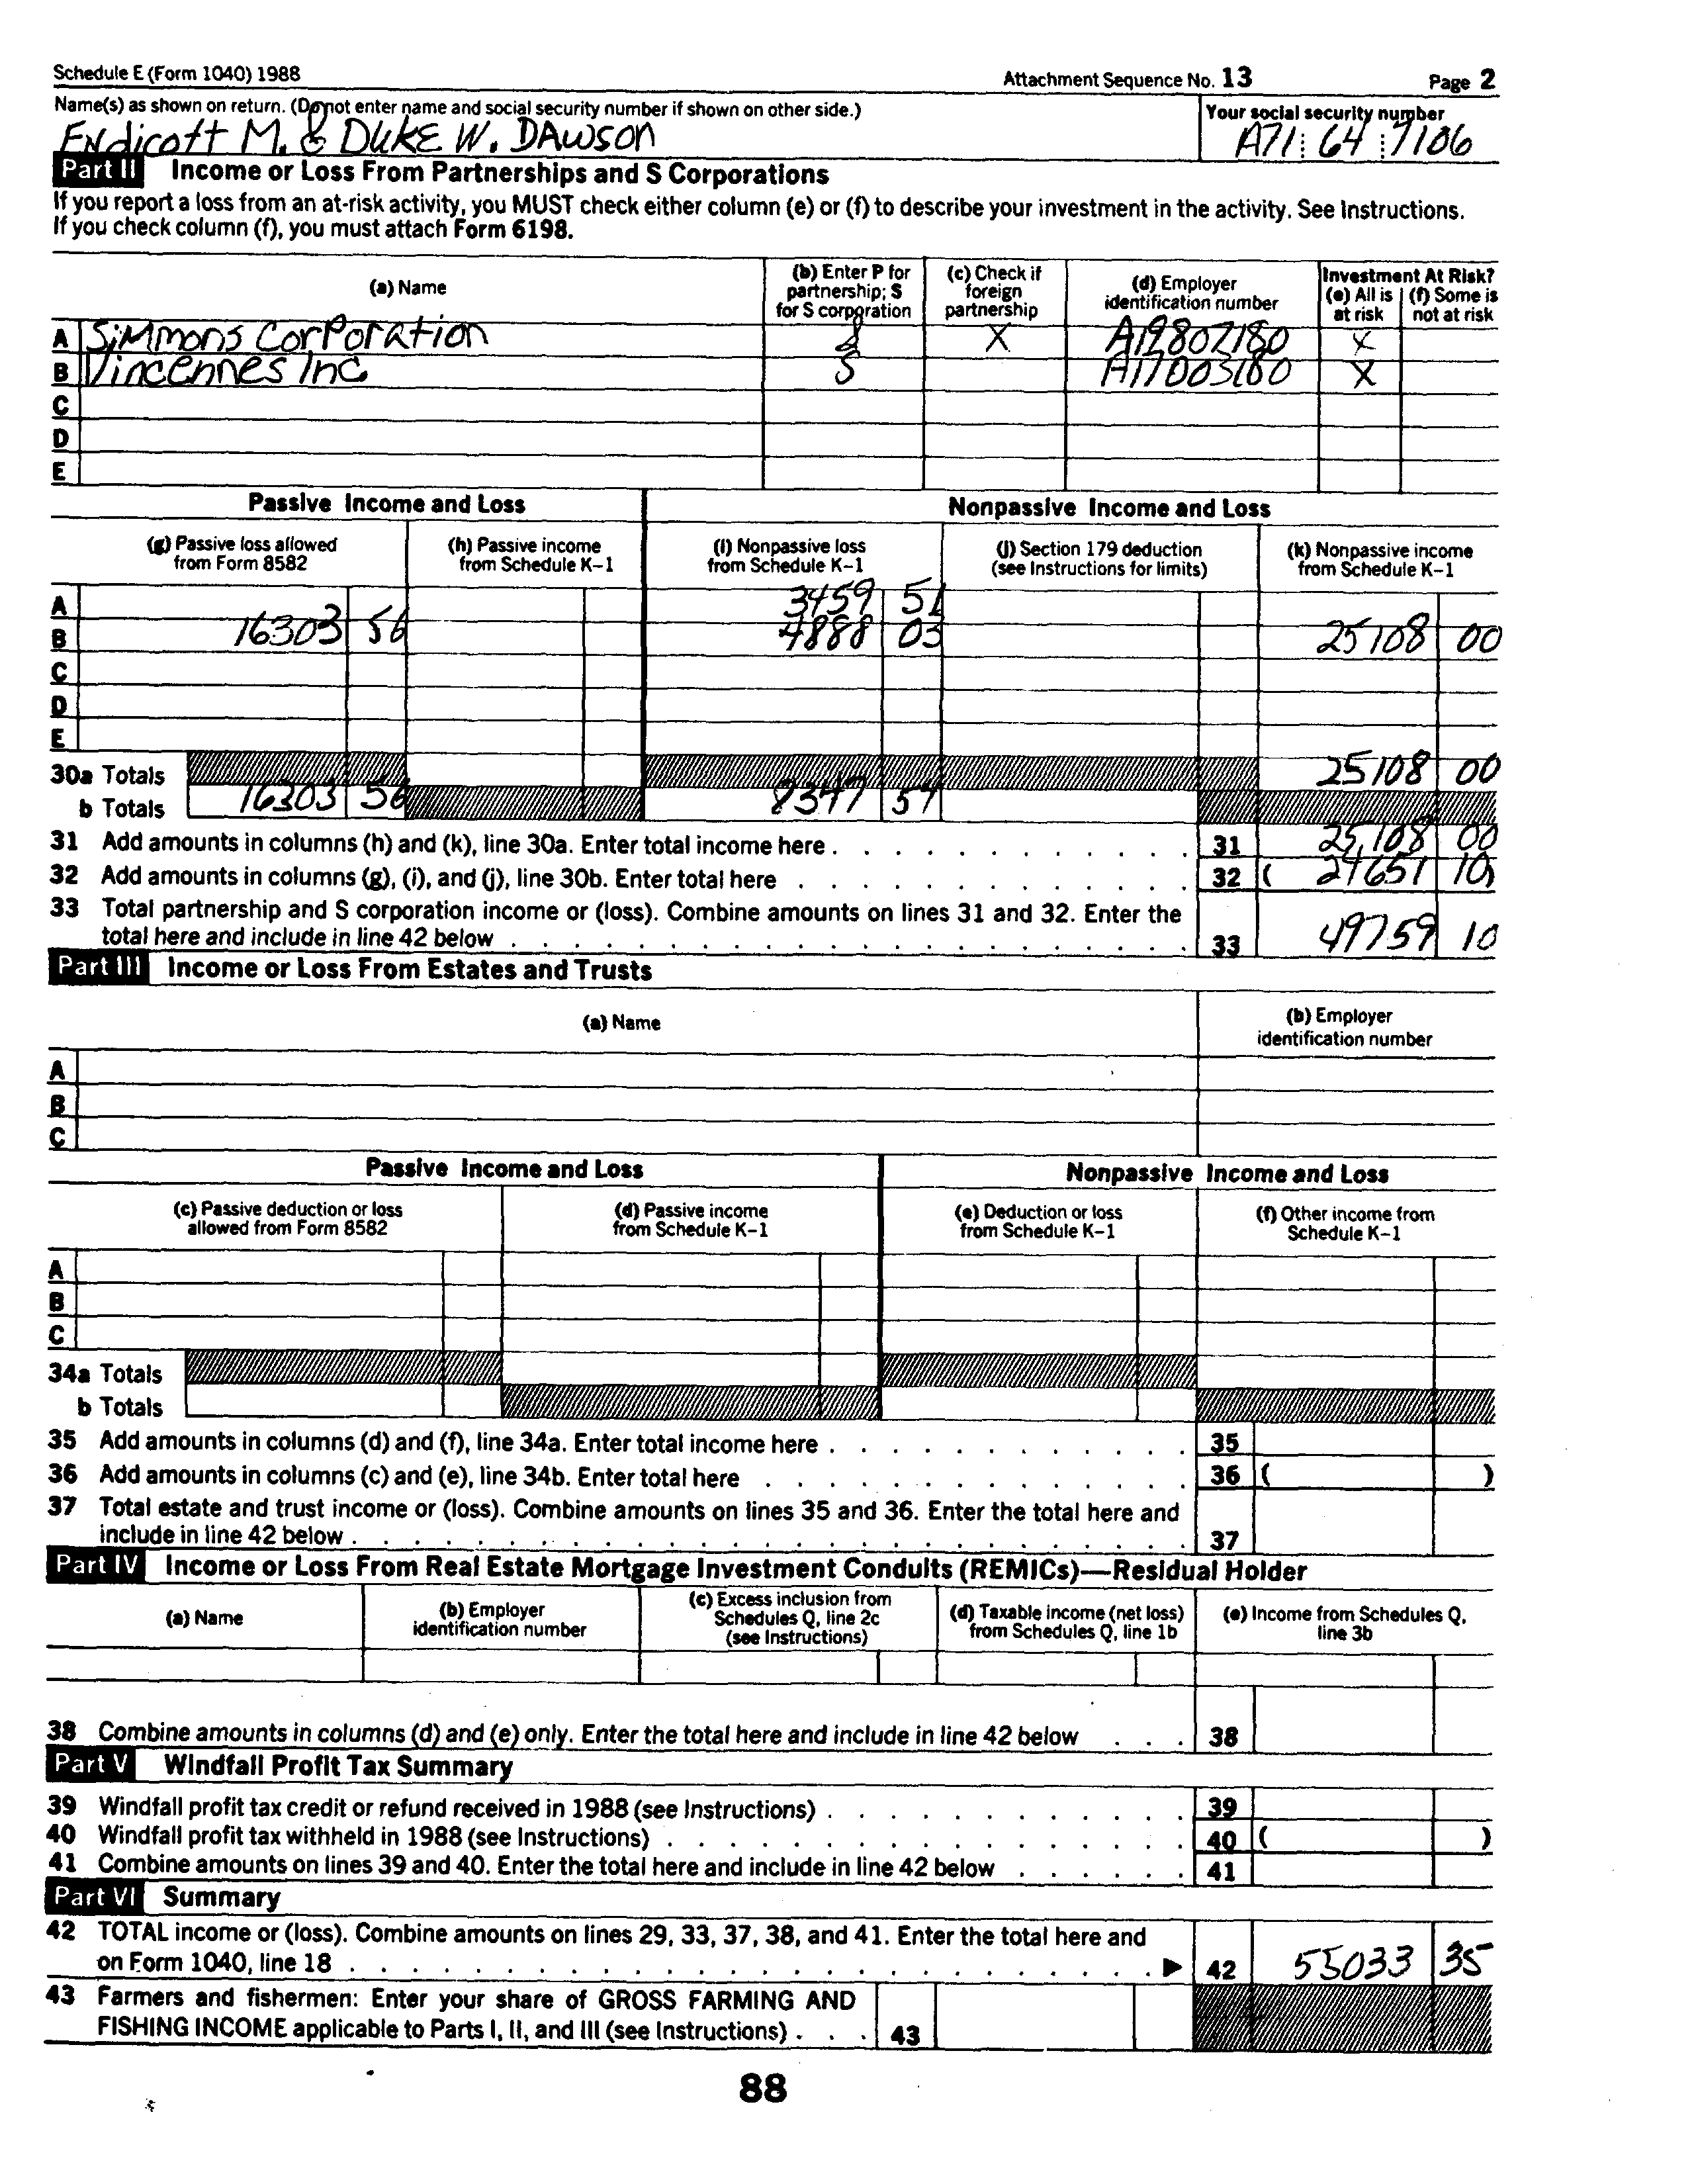 Schedule E (Form 1040) 1988 Attachment Sequence No. 13 Page 2
Name(s) as shown on return. (Do not enter name and social security number if shown on other side.) Your social security number
Endicott M. & Duke W. Dawson A71 64 7106
Part II Income or Loss From Partnerships and S Corporations
If you report a loss from an at-risk activity, you MUST check either column (e) or (f) to describe your investment in the activity. See Instructions.
If you check column (f), you must attach Form 6198.
(a) Name (b) Enter P for partnership; S for S corporation (c) Check if foreign partnership (d) Employer identification number Investment At Risk? (e) All is at risk (f) Some is not at risk
A Simmons Corporation X A19807180 X
B Vincennes Inc S A17003180 X
C
D
E
Passive Income and Loss Nonpassive Income and Loss
(g) Passive loss allowed from Form 8582 (h) Passive income from Schedule K-1 (i) Nonpassive loss from Schedule K-1 (j) Section 179 deduction (see Instructions for limits) (k) Nonpassive income from Schedule K-1
A 3459 51
B 16303 56 4888 03 25108 00
C
D
E
30a Totals 25108 00
b Totals 16303 56 8347 54
31 Add amounts in columns (h) and (k), line 30a. Enter total income here 31 25,108 00
32 Add amounts in columns (g), (i), and (j), line 30b. Enter total here 32 ( 24651 10)
33 Total partnership and S corporation income or (loss). Combine amounts on lines 31 and 32. Enter the
total here and include in line 42 below 33 49759 10
Part III Income or Loss From Estates and Trusts
(a) Name (b) Employer identification number
A
B
C
Passive Income and Loss Nonpassive Income and Loss
(c) Passive deduction or loss allowed from Form 8582 (d) Passive income from Schedule K-1 (e) Deduction or loss from Schedule K-1 (f) Other income from Schedule K-1
A
B
C
34a Totals
b Totals
35 Add amounts in columns (d) and (f), line 34a. Enter total income here 35
36 Add amounts in columns (c) and (e), line 34b. Enter total here 36 ( )
37 Total estate and trust income or (loss). Combine amounts on lines 35 and 36. Enter the total here and
include in line 42 below 37
Part IV Income or Loss From Real Estate Mortgage Investment Conduits (REMICs)—Residual Holder
(a) Name (b) Employer identification number (c) Excess inclusion from Schedules Q, line 2c (see Instructions) (d) Taxable income (net loss) from Schedules Q, line 1b (e) Income from Schedules Q, line 3b
38 Combine amounts in columns (d) and (e) only. Enter the total here and include in line 42 below 38
Part V Windfall Profit Tax Summary
39 Windfall profit tax credit or refund received in 1988 (see Instructions) 39
40 Windfall profit tax withheld in 1988 (see Instructions) 40 ( )
41 Combine amounts on lines 39 and 40. Enter the total here and include in line 42 below 41
Part VI Summary
42 TOTAL income or (loss). Combine amounts on lines 29, 33, 37, 38, and 41. Enter the total here and
on Form 1040, line 18 ▶ 42 55033 35
43 Farmers and fishermen: Enter your share of GROSS FARMING AND
FISHING INCOME applicable to Parts I, II, and III (see Instructions) 43
88